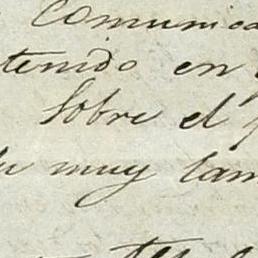 comunica
tenido en
sobre el
muy lam